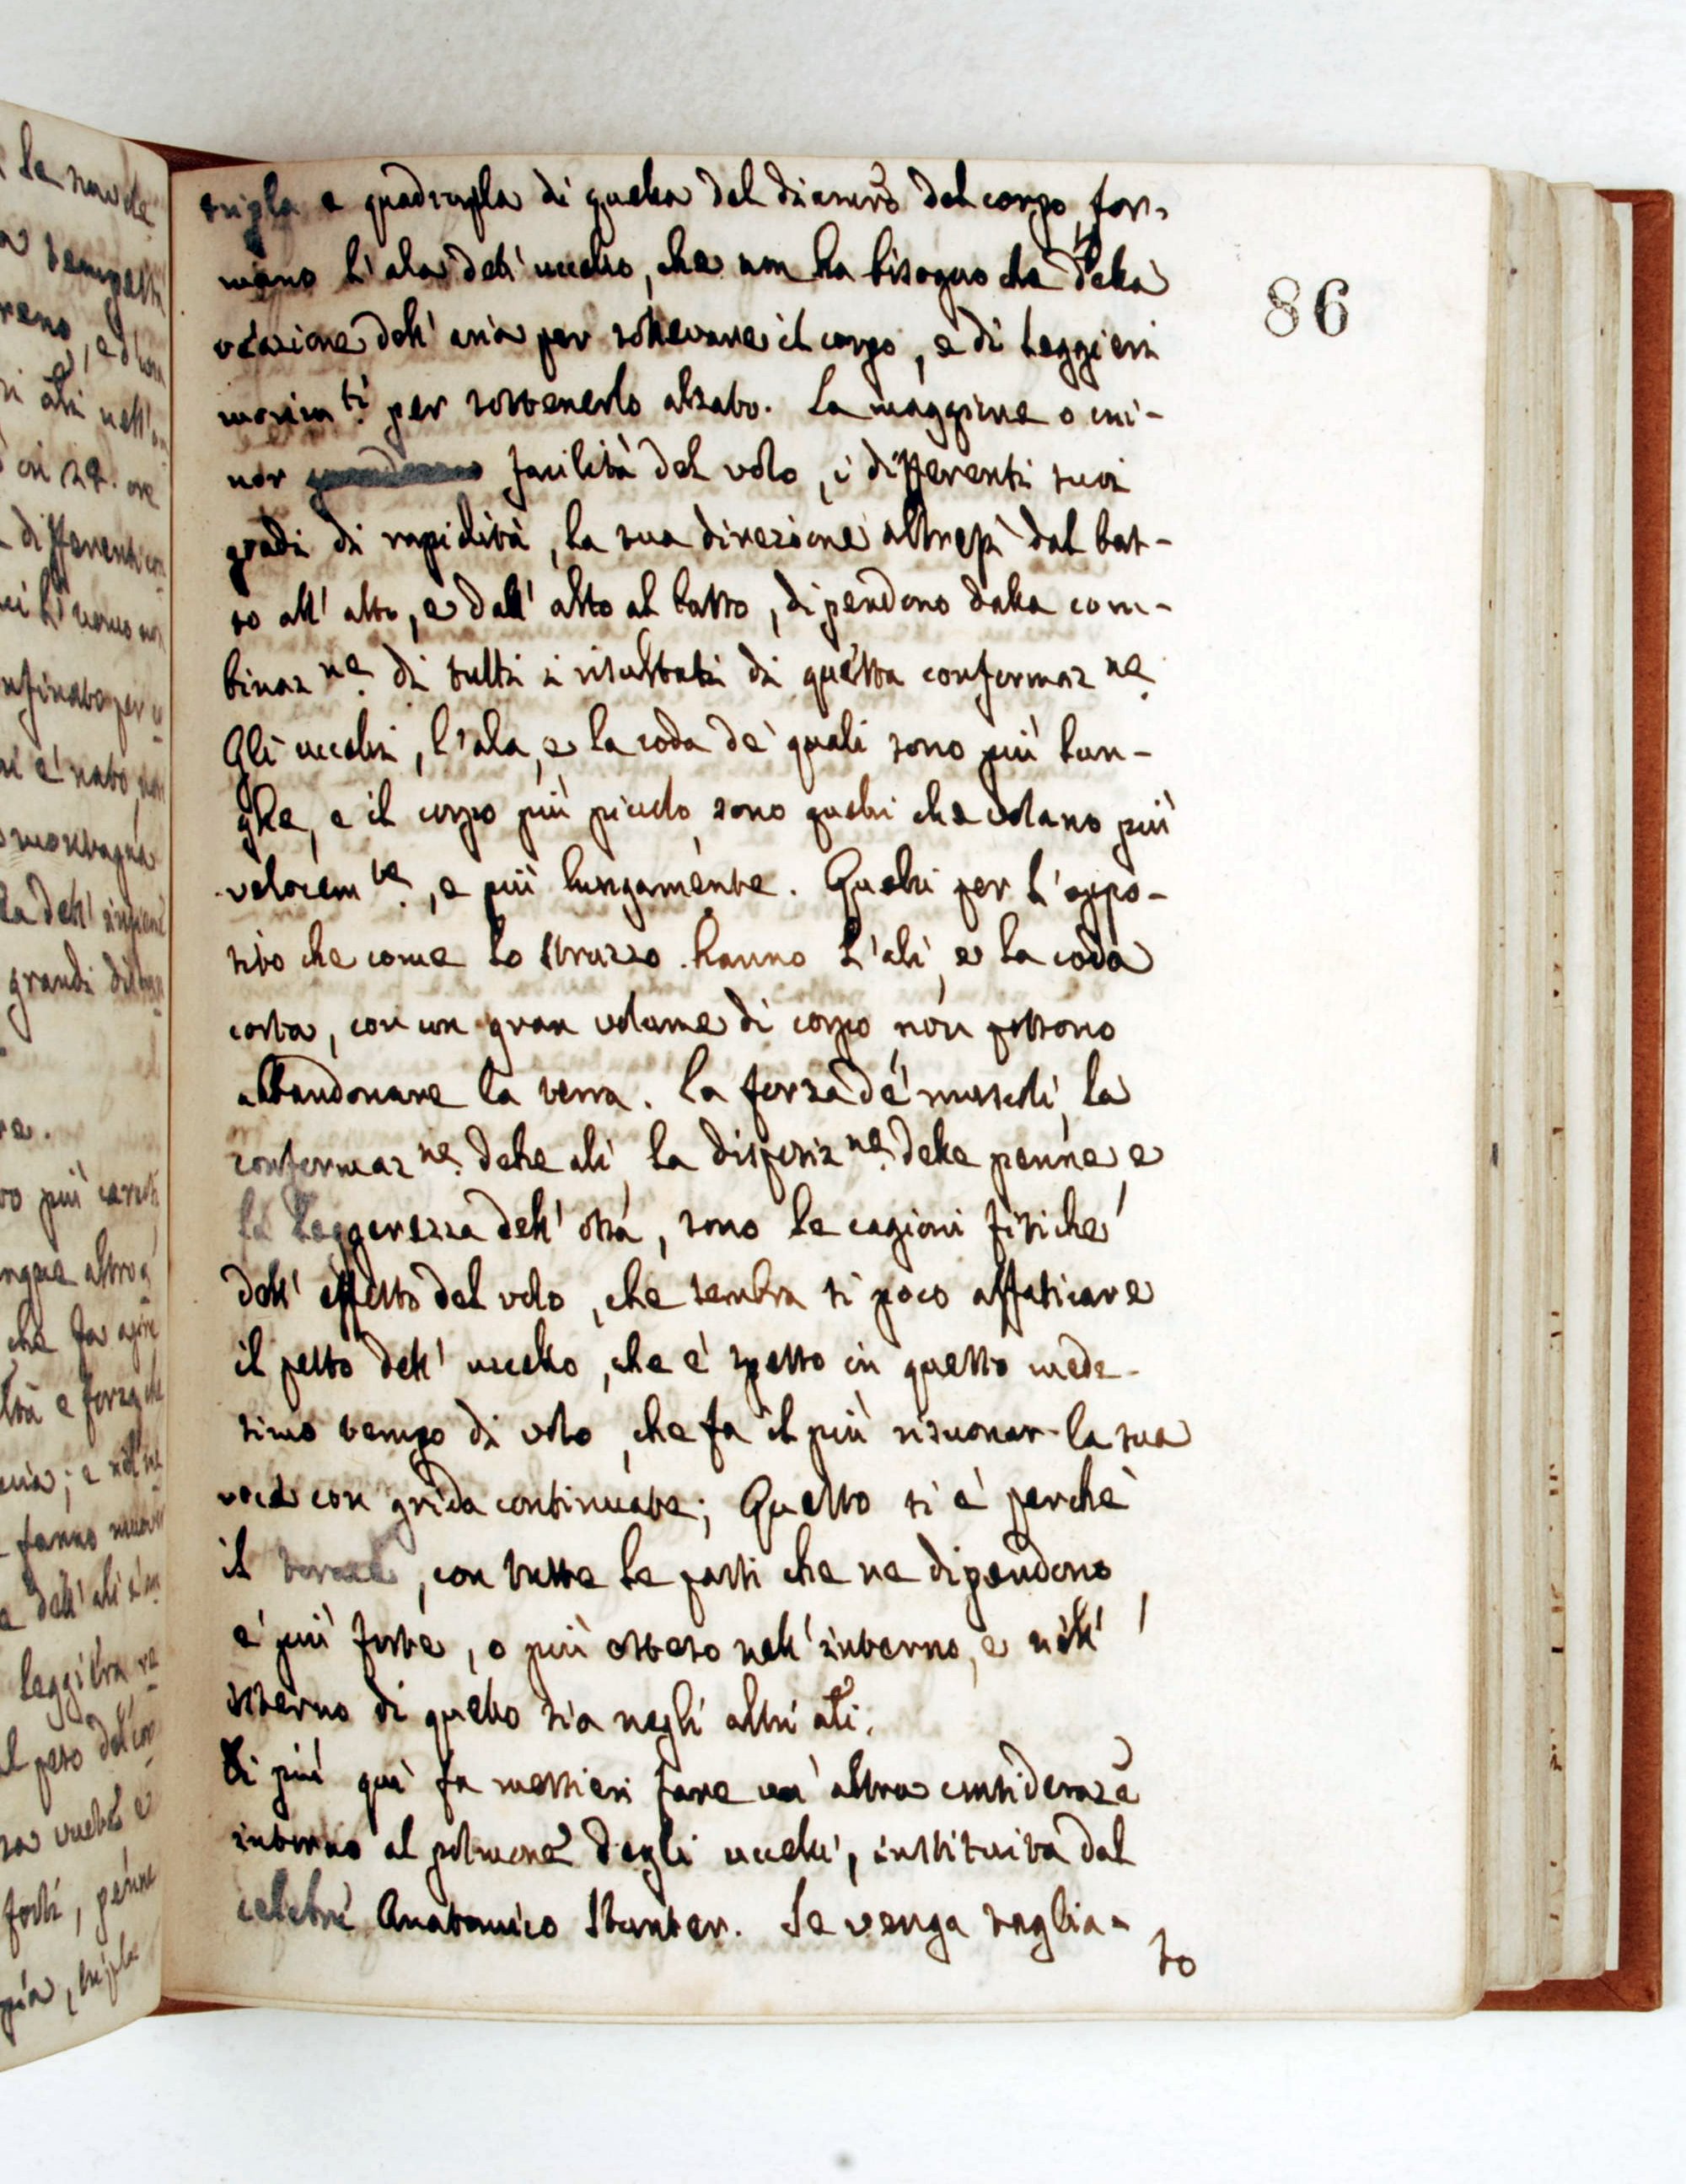 tripla e quadrupla di quella del diamero del corpo, for-
mano l'ala dell'uccello, che non ha bisogno che della
vibrazione dell'aria per sollevare il corpo, e di leggieri
movim.ti per sostenerlo alzato. La maggiore o mi-
nor facilità del volo, i differenti suoi
gradi di rapidità, la sua direzione altresì dal bas-
so all'alto, e dall'alto al basso, dipendono dalla com-
binaz.ne di tutti i risultati di questa conformaz.ne
Gli uccelli, l'ala, e la coda de' quali sono più lun-
ghe, e il corpo più piccolo sono quelli che volano più
velocem.te, e più lungamente. Quelli per l'oppo-
sito che come lo struzzo hanno l'ali, e la coda
corta, con un gran volume di corpo non possono
abbandonare la terra. La forza de' muscoli, la
conformaz.ne delle ali, la disposiz.ne delle penne, e
la leggerezza dell'ossa, sono le cagioni fisiche
dell'effetto del volo, che sembra sì poco affaticare
il petto dell'uccello, che è spesso in questo mede-
simo tempo di volo, che fa il più risuonar la sua
voce con grida continuate; Questo si è perchè
il torace, con tutte le parti che ne dipendono
è più forte, o più esteso nell'interno, e nell'
esterno di quello sia negli altri ali.
Di più quì fa mestieri fare un'altra consideraze
intorno al polmone degli uccelli, instituita dal
celebre Anatomico Hunter. Se venga taglia-
to
86
la non che
a tempesta
reno
, ed
altri nell'
in 24. ore
differenti con
l'uomo non
è nato, non
montagna
dell'
grandi
re.
più
che fa agire
e forza
; e nel
fanno
dell'ali
leggi
l peso del cor
forti, penne
pia, tripla